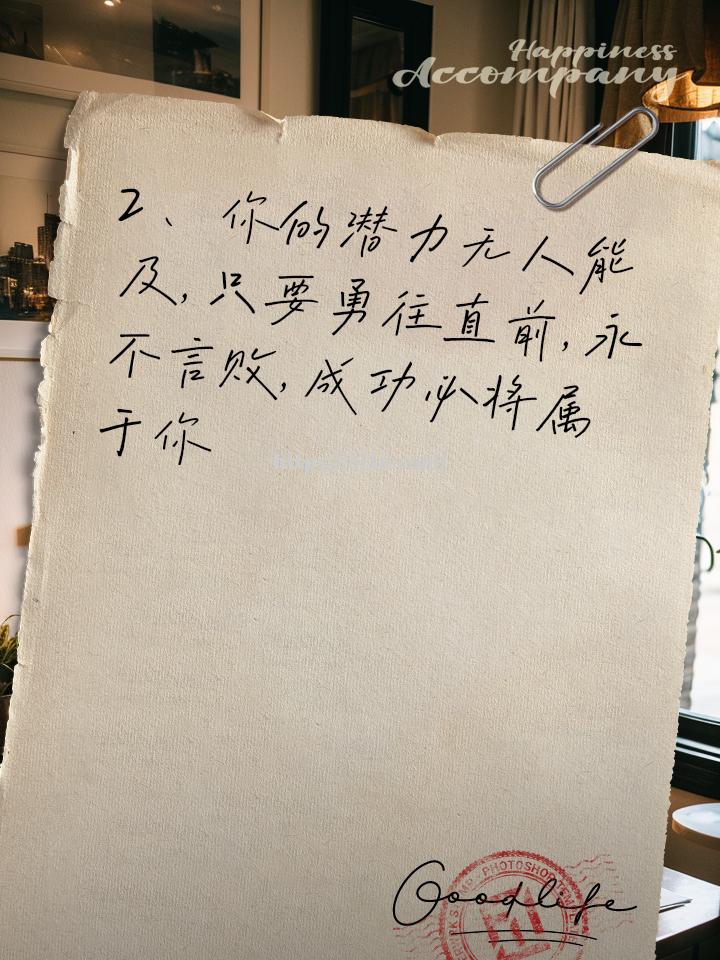 Happiness
Accompany
2、你的潜力无人能
及，只要勇往直前，永
不言败，成功必将属
于你
Goodlife